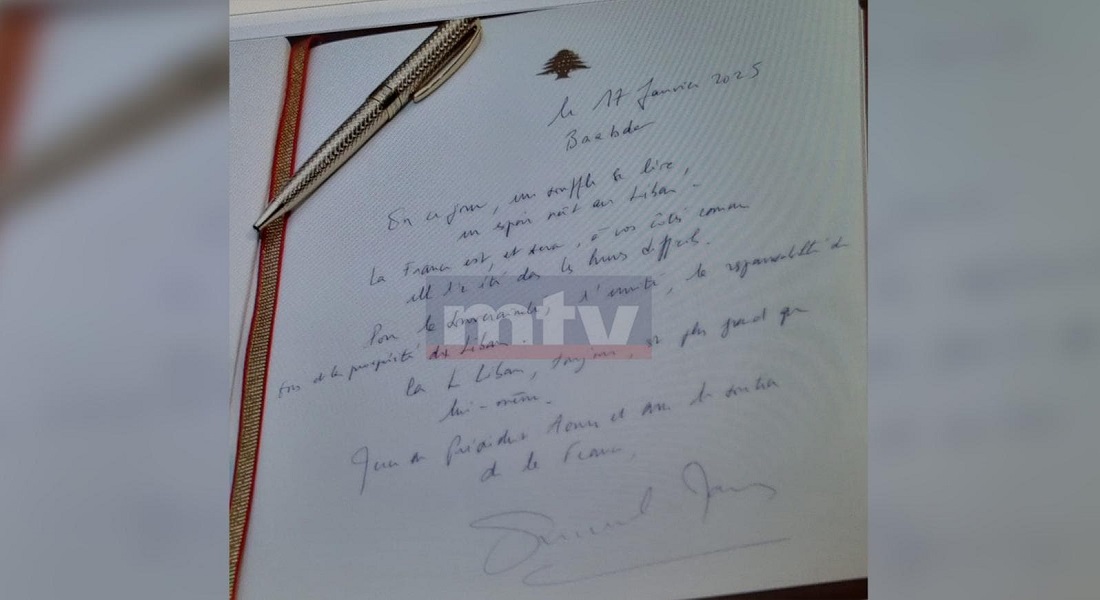 le 17 Janvier 2025
Baabda
En ce jour, un souffle se lève,
un espoir naît au Liban.
La France est, et sera, à vos côtés comme
elle l'a été dans les heures difficiles.
Pour la souveraineté, l'unité, la responsabilité de
tous et la prospérité du Liban.
mtv
Car le Liban, toujours, est plus grand que
lui-même.
Président Aoun et avec le soutien
de la France.